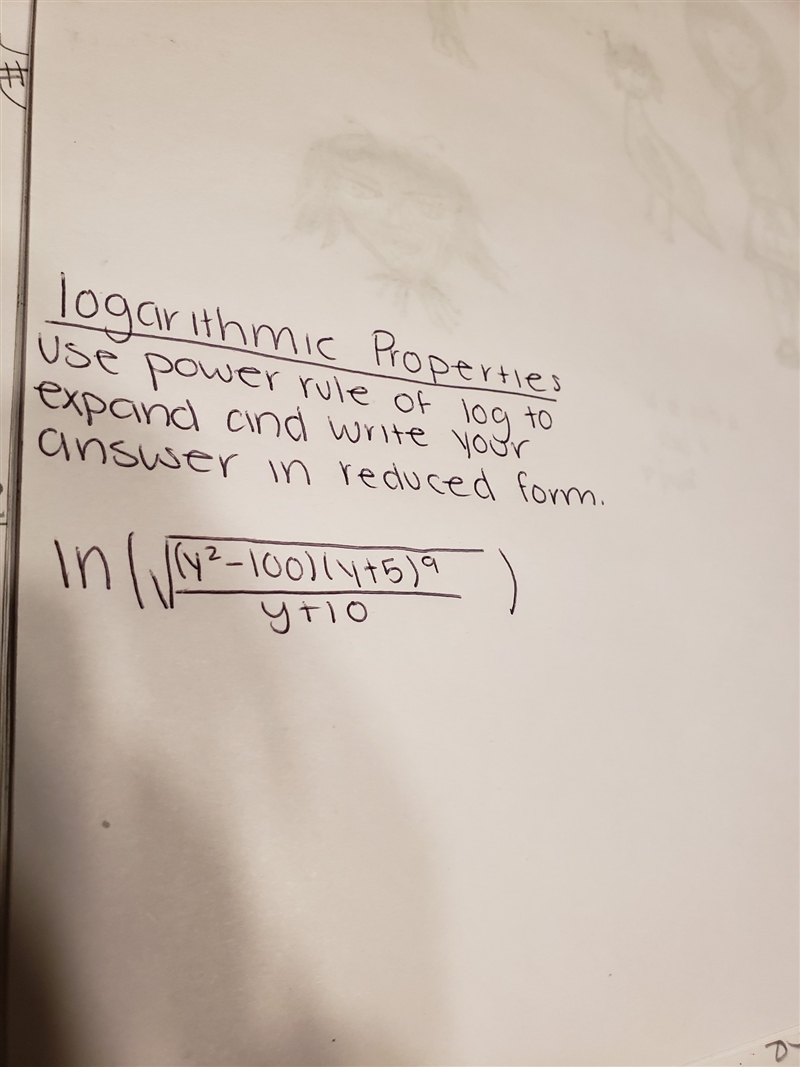 logarithmic Properties
Use power rule of log to
expand and write your
answer in reduced form.
ln(√((y²-100)(y+5)⁹ / y+10))